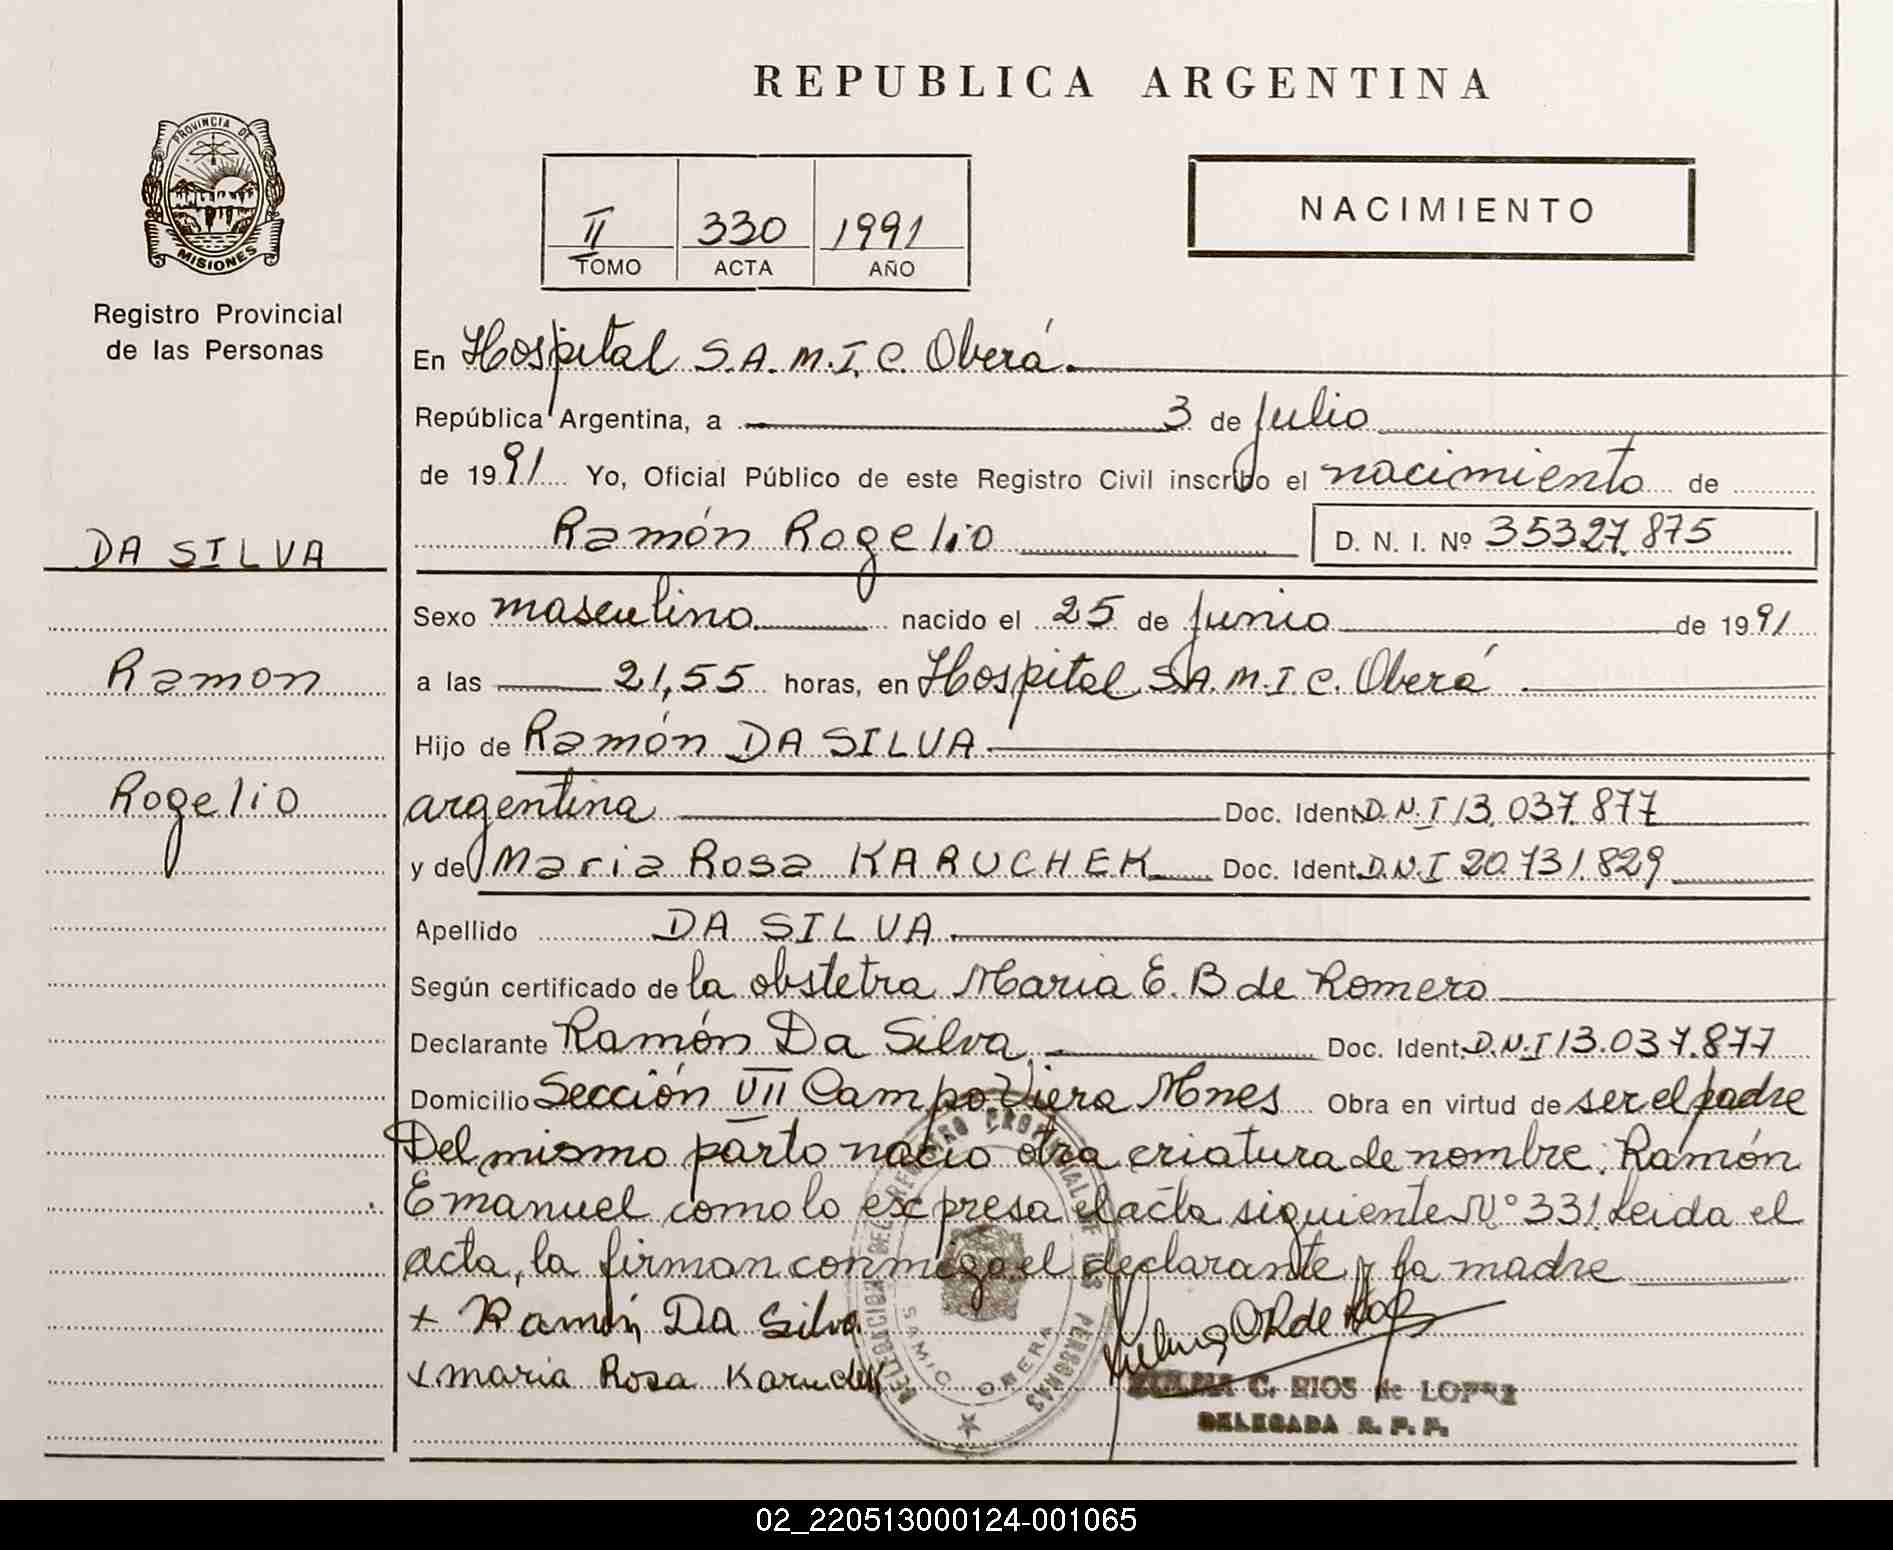 REPUBLICA ARGENTINA
PROVINCIA DE
MISIONES
Registro Provincial
de las Personas
II 330 1991
TOMO ACTA AÑO
NACIMIENTO
En Hospital S.A.M.I.C. Oberá.
República Argentina, a 3 de Julio
de 1991 Yo, Oficial Público de este Registro Civil inscribo el nacimiento de
Ramón Rogelio D. N. I. Nº 35327.875
DA SILVA
Ramon
Rogelio
Sexo masculino nacido el 25 de Junio de 1991
a las 21,55 horas, en Hospital S.A.M.I.C. Oberá.
Hijo de Ramón DA SILVA
argentina Doc. Ident. D.N.I 13.037.877
y de Maria Rosa KARUCHEK Doc. Ident. D.N.I 20.731.829
Apellido DA SILVA.
Según certificado de la obstetra Maria E. B de Romero
Declarante Ramón Da Silva. Doc. Ident. D.N.I 13.037.877
Domicilio Sección VII Campo Viera Mnes Obra en virtud de ser el padre
Del mismo parto nacio otra criatura de nombre: Ramón
Emanuel como lo expresa el acta siguiente Nº 331. Leida el
acta, la firman conmigo el declarante y la madre
+ Ramón Da Silva
+ maria Rosa Karuchek
DELEGACION DEL REGISTRO PROVINCIAL DE LAS PERSONAS
SAMIC OBERA
C. RIOS de LOPEZ
DELEGADA R. P. P.
02_220513000124-001065